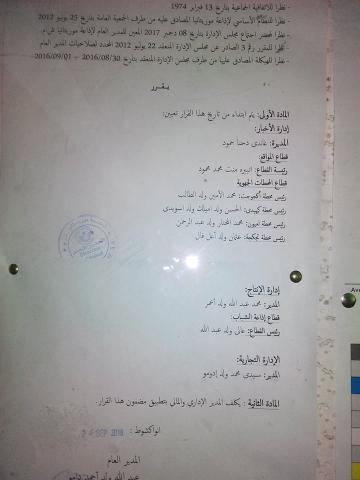 - نظرا للاتفاقية الجماعية بتاريخ 13 فبراير 1974
- نظرا للنظام الأساسي لإذاعة موريتانيا المصادق عليه من طرف الجمعية العامة بتاريخ 25 يونيو 2012
- نظرا لمحضر اجتماع مجلس الإدارة بتاريخ 08 دجنبر 2017 المعين للمدير العام لإذاعة موريتانيا ش.م.
- نظرا للمقرر رقم 3 الصادر عن مجلس الإدارة المنعقد 22 يوليو 2012 المحدد لصلاحيات المدير العام
- نظرا للهيكلة المصادق عليها من طرف مجلس الإدارة المنعقد بتاريخ 2016/08/30 – 2016/09/01
يقـرر
المادة الأولى: يتم ابتداء من تاريخ هذا القرار تعيين:
إدارة الأخبار:
المديرة: عائدي دحنا حمود
قطاع المواقع:
رئيسة القطاع: منت محمد محمود
قطاع المحطات الجهوية
رئيس محطة أكجوجت: محمد الأمين ولد الطالب
رئيس محطة كيهيدي: الحسن ولد امبات ولد اسويدي
رئيس محطة لعيون: محمد المختار ولد عبد الرحمن
رئيس محطة تجكجة: عثمان ولد أعل فال
إدارة الإنتاج:
المدير: محمد عبد الله ولد أعمر
قطاع إذاعة الشباب:
رئيس القطاع: عالي ولد عبد الله
الإدارة التجارية:
المدير: سيدي محمد ولد إدومو
المادة الثانية : يكلف المدير الإداري والمالي بتطبيق مضمون هذا القرار.
انواكشوط :
SEP 2018
المدير العام
عبد الله ولد أحمد